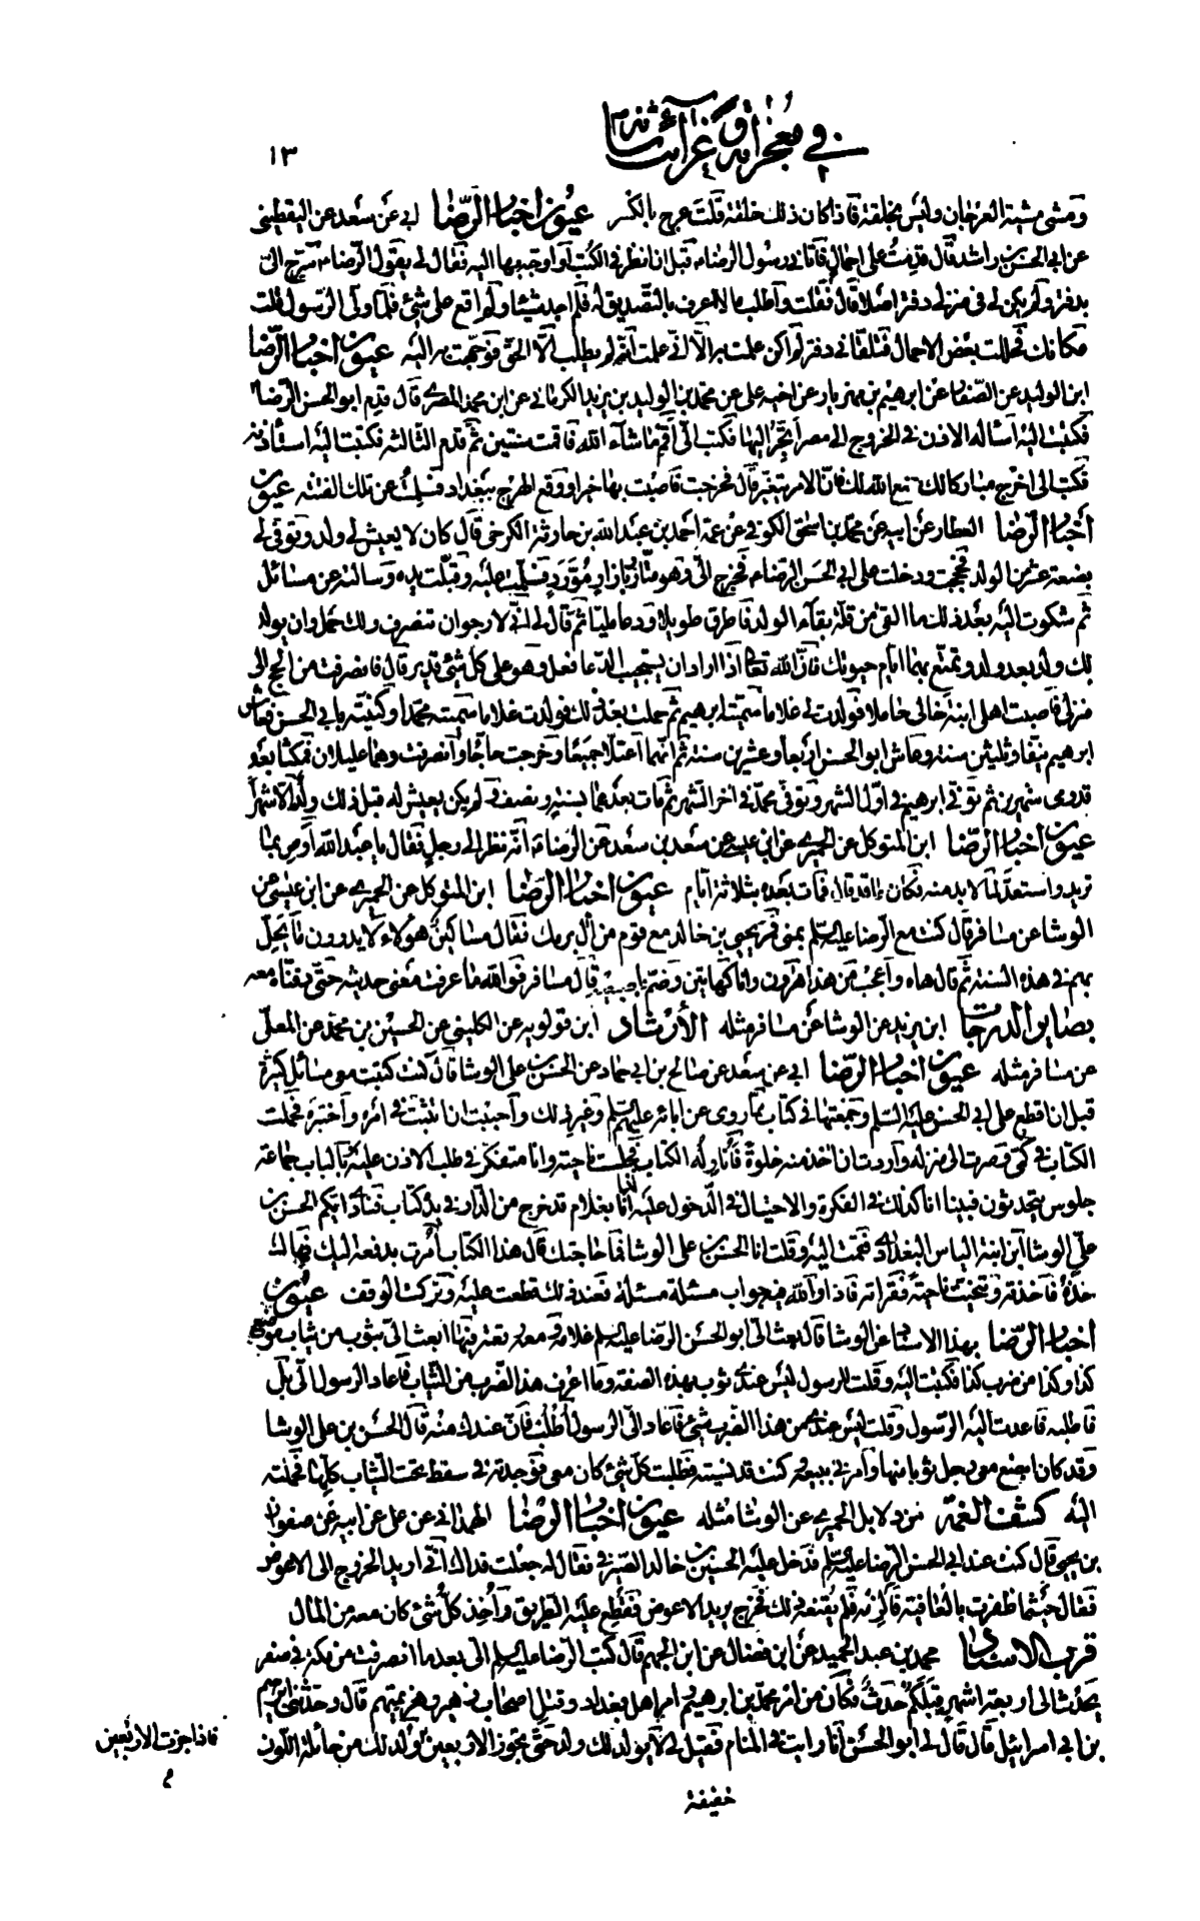 في معجزاته وغرائب شأنه
١٣
ومشى مشية العرجان وليس بخلقة فاذا كان ذلك خلقة قلت عرج بالكسر عيون اخبار الرضا ابي عن سعد عن اليقطيني
عن ابي الحسن بن راشد قال قدمت علي احمال فأتاني رسول الرضا ع قبل ان انظر في الكتب او اوجه بها اليه فقال لي يقول الرضا ع سرح اليّ
بدفتر ولم يكن لي في منزلي دفتر اصلا قال فقلت واطلب ما لا اعرف بالتصديق له فلم اجد شيئا ولم اقع على شيء فلما ولى الرسول قلت
مكانك فحللت بعض الاحمال فتلقاني دفتر لم اكن علمت به الا اني علمت انه لم يطلب الا الحق فوجهت به اليه عيون اخبار الرضا
ابن الوليد عن الصفار عن ابرهيم بن مهزيار عن اخيه علي عن محمد بن الوليد بن يزيد الكرماني عن ابن محمد المصري قال قدم ابو الحسن الرضا ع
فكتبت اليه اسأله الاذن في الخروج الى مصر اتجر اليها فكتب الي اقم ما شاء الله فاقمت سنتين ثم قدم الثالثة فكتبت اليه استأذنه
فكتب الي اخرج مباركا لك صنع الله لك فان الامر يتغير قال فخرجت فاصبت بها خيرا ووقع الهرج ببغداد فسلمت عن تلك الفتنة عيون
اخبار الرضا العطار عن ابيه عن محمد بن اسحق الكوفي عن عمه احمد بن عبد الله بن حارثة الكرخي قال كان لا يعيش لي ولد وتوفي لي
بضعة عشر من الولد فحججت ودخلت على ابي الحسن الرضا ع فخرج الي وهو متأزر بازار مورد فسلمت عليه وقبلت يده وسألته عن مسائل
ثم شكوت اليه بعد ذلك ما القى من قلة بقاء الولد فاطرق طويلا ودعا مليا ثم قال لي اني لارجو ان تنصرف ولك حمل وان يولد
لك ولد بعد ولد وتمتع بهما ايام حيوتك فان الله تعالى اذا اراد ان يستجيب الدعا فعل وهو على كل شيء قدير قال فانصرفت من الحج الى
منزلي فاصبت اهلي ابنة خالي حاملا فولدت لي غلاما سميته ابرهيم ثم حملت بعد ذلك فولدت غلاما سميته محمدا وكنيته بابي الحسن فعاش
ابرهيم نيفا وثلثين سنة وعاش ابو الحسن اربعا وعشرين سنة ثم انهما اعتلا جميعا وخرجت حاجا وانصرفت وهما عليلان فمكثا بعد
قدومي شهرين ثم توفي ابرهيم في اول الشهر وتوفي محمد في اخر الشهر ثم مات بعدهما بسنة ونصف ولم يكن يعيش له قبل ذلك ولد الا شهرا
عيون اخبار الرضا ابن المتوكل عن الحميري عن ابن عيسى عن سعد بن سعد عن الرضا ع انه نظر الى رجل فقال يا عبد الله اوص بما
تريد واستعد لما لا بد منه فكان ما قد قال فمات بعده بثلاثة ايام عيون اخبار الرضا ابن المتوكل عن الحميري عن ابن عيسى عن
الوشا عن مسافر قال كنت مع الرضا عليه السلم بمنى فمر يحيى بن خالد مع قوم من آل برمك فقال مساكين هؤلاء لا يدرون ما يحل
بهم في هذه السنة ثم قال هاه واعجب من هذا هرون وانا كهاتين وضم باصبعيه قال مسافر فوالله ما عرفت معنى حديثه حتى دفناه معه
بصاير الدرجات ابن يزيد عن الوشا عن مسافر مثله الارشاد ابن قولويه عن الكليني عن الحسين بن محمد عن المعلى
عن مسافر مثله عيون اخبار الرضا ابي عن سعد عن صالح بن ابي حماد عن الحسن بن علي الوشا قال كنت كتبت معي مسائل كثيرة
قبل ان اقطع على ابي الحسن عليه السلم وجمعتها في كتاب مما روي عن ابائه عليهم السلم وغير ذلك واحببت ان اثبت في امره واختبره فحملت
الكتاب في كمي وصرت الى منزله واردت ان اخذ منه خلوة فاناوله الكتاب فجلست ناحية وانا متفكر في طلب الاذن عليه وبالباب جماعة
جلوس يتحدثون فبينا انا كذلك في الفكرة والاحتيال في الدخول عليه اذا بغلام قد خرج من الدار في يده كتاب فنادى ايكم الحسن بن
علي الوشا ابن ابنة الياس البغدادي فقمت اليه وقلت انا الحسن بن علي الوشا فما حاجتك قال هذا الكتاب امرت بدفعه اليك فهاك
خذه فاخذته وتنحيت ناحية فقرأته فاذا والله فيه جواب مسئلة مسئلة فعند ذلك قطعت عليه وتركت الوقف عيون
اخبار الرضا بهذا الاسناد عن الوشا قال بعث الي ابو الحسن الرضا عليه السلم غلامه ومعه رقعة فيها ابعث الي بثوب من ثياب موضع
كذا وكذا من ضرب كذا فكتبت اليه وقلت للرسول ليس عندي ثوب بهذه الصفة وما اعرف هذا الضرب من الثياب فاعاد الرسول الي بلى
فاطلبه فاعدت اليه الرسول وقلت ليس عندي من هذا الضرب شيء فاعاد الي الرسول اطلب فان عندك منه قال الحسن بن علي الوشا
وقد كان ابضع معي رجل ثوبا منها وامرني ببيعه وكنت قد نسيته فطلبت كل شيء كان معي فوجدته في سفط تحت الثياب كلها فحملته
اليه كشف الغمة من دلايل الحميري عن الوشا مثله عيون اخبار الرضا الهمداني عن علي عن ابيه عن صفوان
بن يحيى قال كنت عند ابي الحسن الرضا عليه السلم فدخل عليه الحسين بن خالد الصيرفي فقال له جعلت فداك اني اريد الخروج الى الاعوض
فقال حيثما ظفرت بالعافية فالزمه فلم يقنعه ذلك فخرج يريد الاعوض فقطع عليه الطريق واخذ كل شيء كان معه من المال
قرب الاسناد محمد بن عبد الحميد عن ابن فضال عن ابن الجهم قال كتب الرضا عليه السلم الي بعد ما انصرفت من مكة في صفر
يحدث الى اربعة اشهر قبلكم حدث فكان من امر محمد بن ابرهيم وامر اهل بغداد وقتل اصحاب زهير وهزيمتهم قال وحدثني ابرهيم
بن ابي اسرائيل قال قال لي ابو الحسن انا رايت في المنام فقيل لي لا يولد لك ولد حتى تجوز الاربعين ولد لك من حائلة اللون
فاذا جزت الاربعين
خفيفة